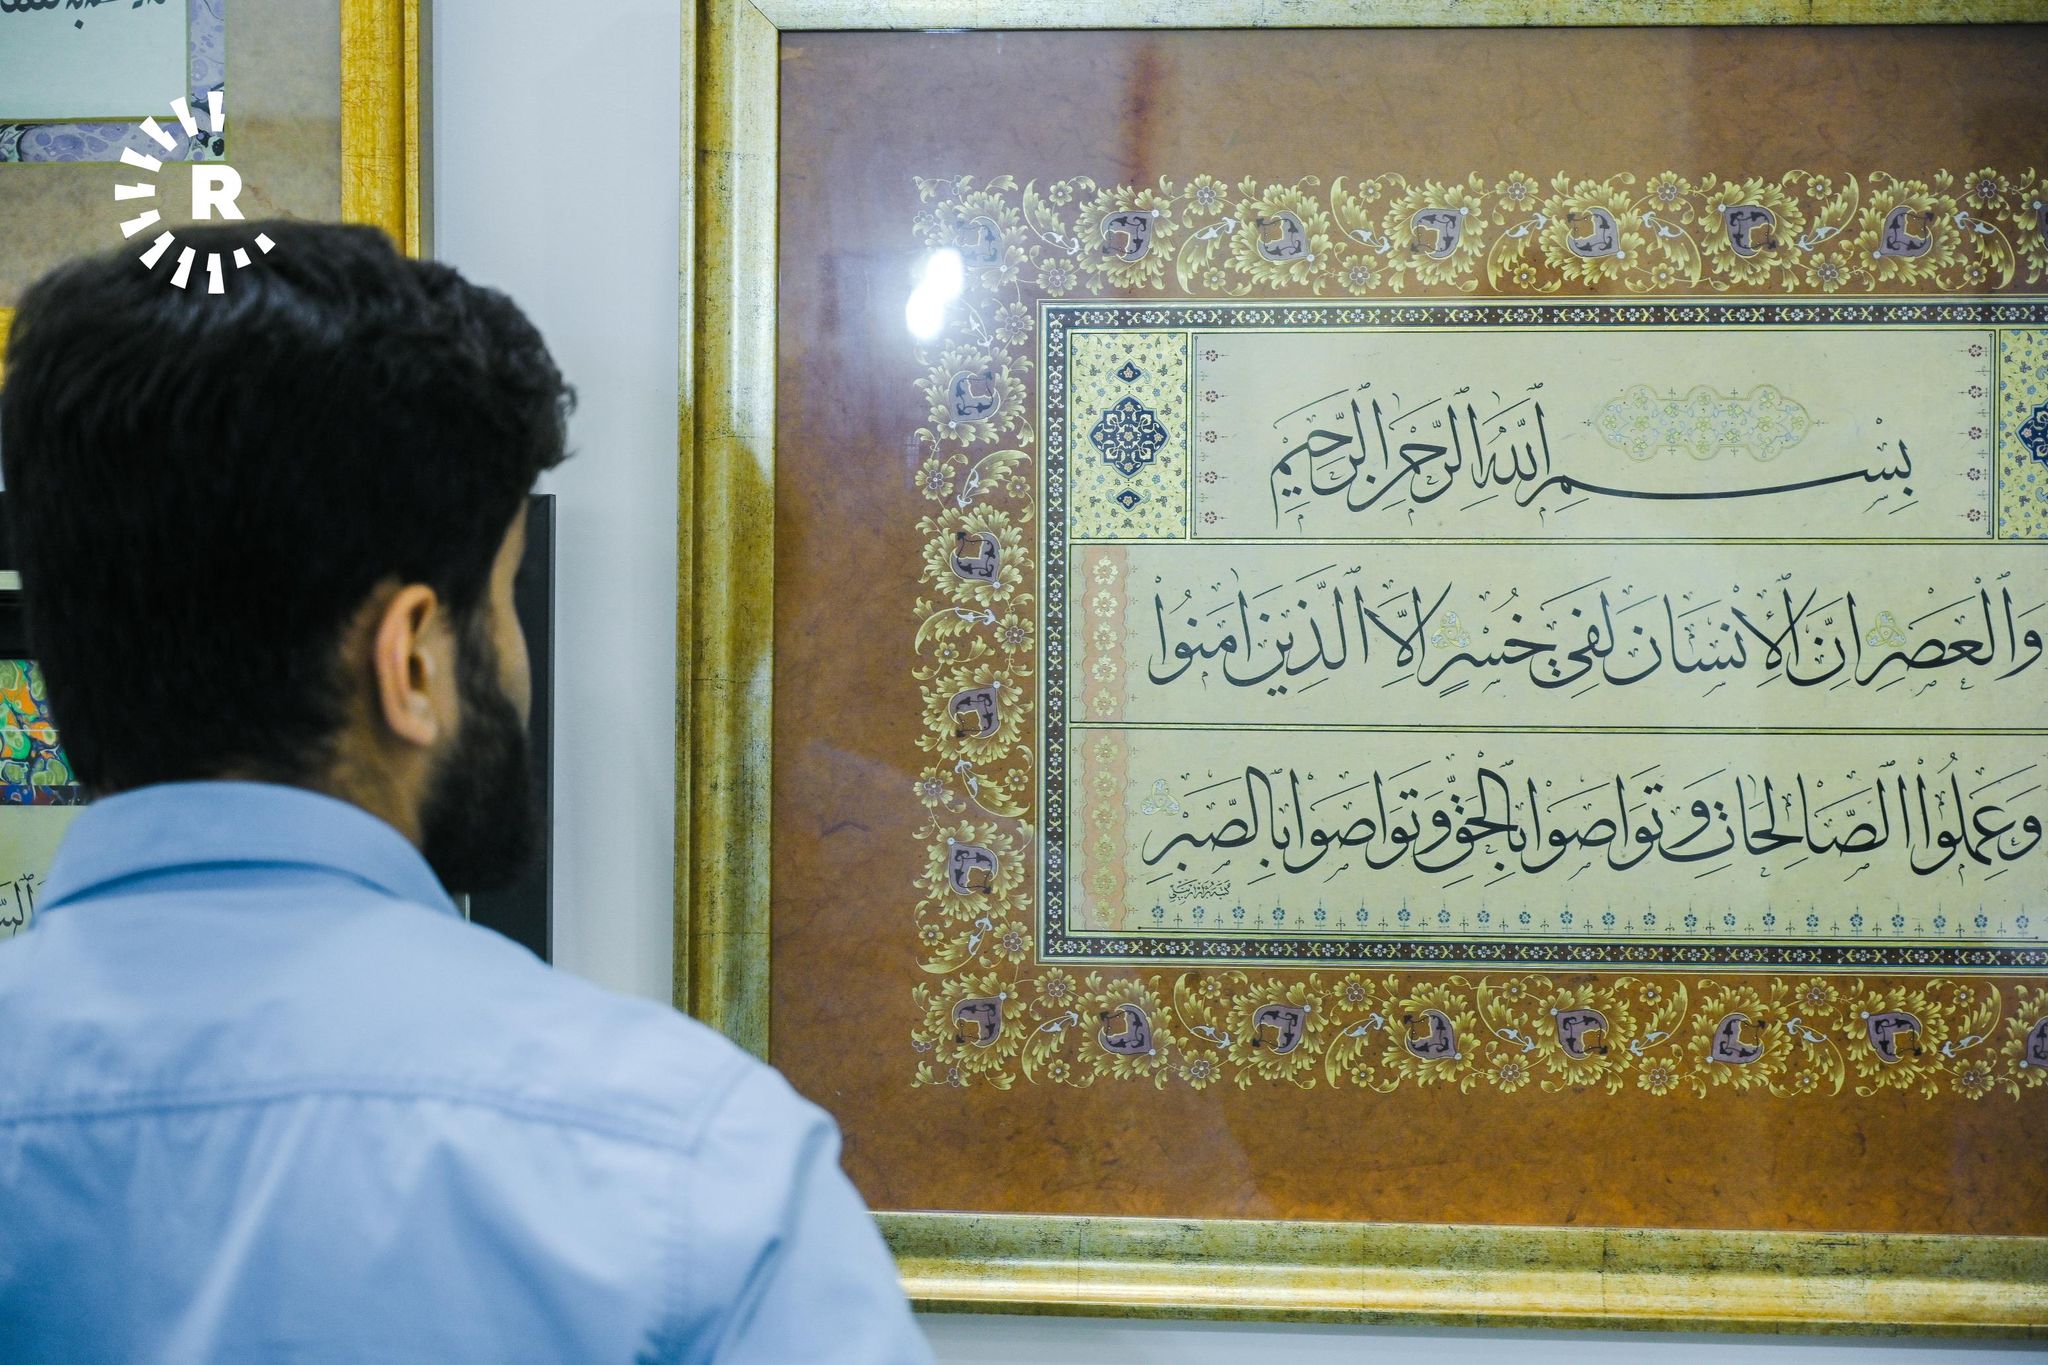 R
بِسْمِ اللهِ الرَّحْمٰنِ الرَّحِيْمِ
وَالْعَصْرِ اِنَّ الْاِنْسَانَ لَفِي خُسْرٍ اِلَّا الَّذِيْنَ اٰمَنُوا
وَعَمِلُوا الصَّالِحَاتِ وَتَوَاصَوْا بِالْحَقِّ وَتَوَاصَوْا بِالصَّبْرِ